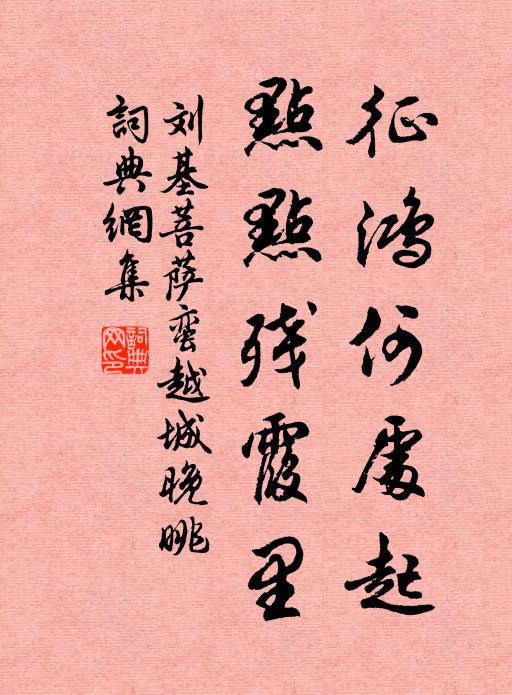 征鸿何處起
點點残霞里
刘基菩萨蛮越城晚眺
詞典網集
詞典网印